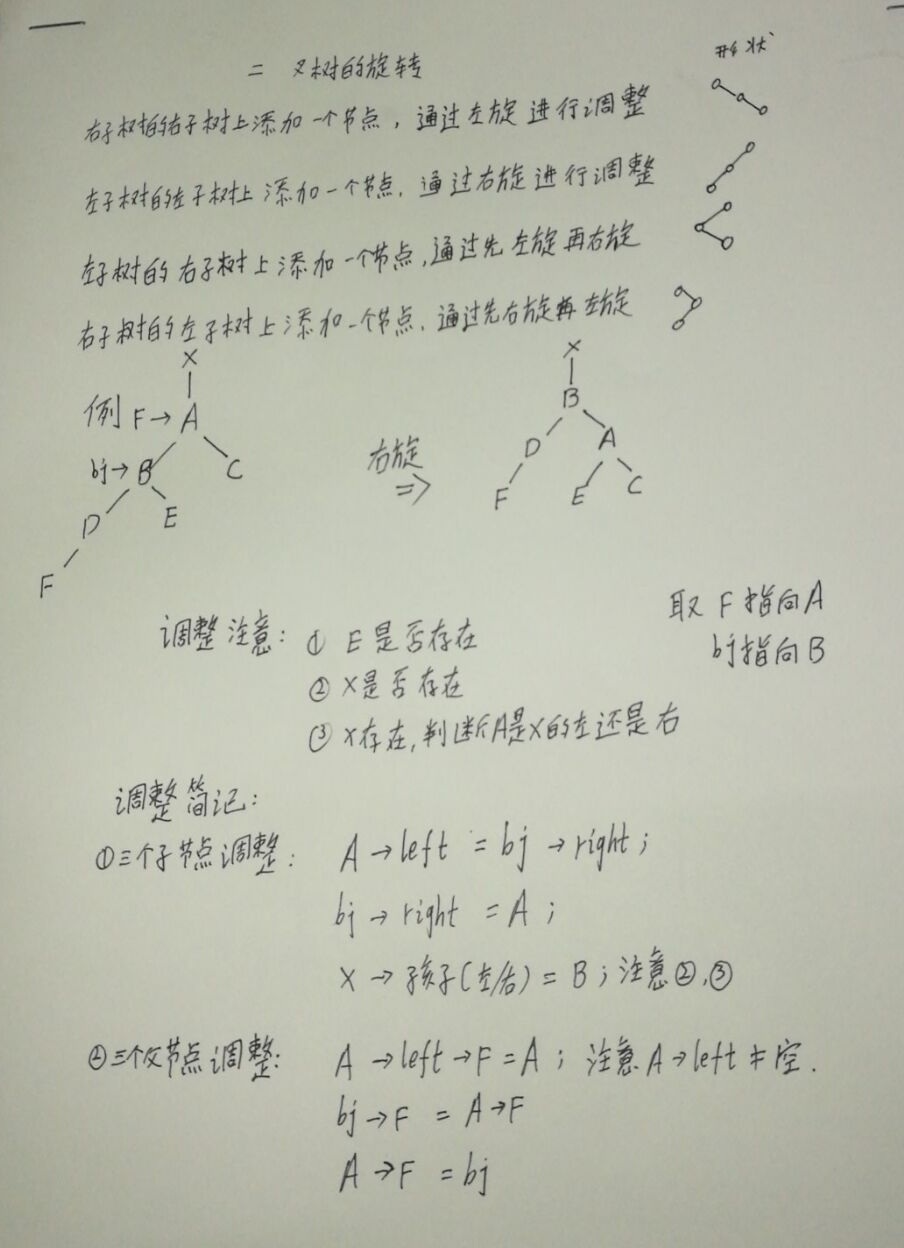 二叉树的旋转
形状
右子树的右子树上添加一个节点，通过左旋进行调整
左子树的左子树上添加一个节点，通过右旋进行调整
左子树的右子树上添加一个节点，通过先左旋再右旋
右子树的左子树上添加一个节点，通过先右旋再左旋
X
X
例 F→A
B
bj→B
C
右旋
⇒
D
A
D
E
F
E
C
F
取 F指向A
bj指向B
调整注意：① E是否存在
② X是否存在
③ X存在，判断A是X的左还是右
调整简记：
①三个子节点调整： A→left = bj→right；
bj→right = A；
X→孩子(左/右) = B；注意②，③
②三个父节点调整： A→left→F = A； 注意A→left≠空.
bj→F = A→F
A→F = bj